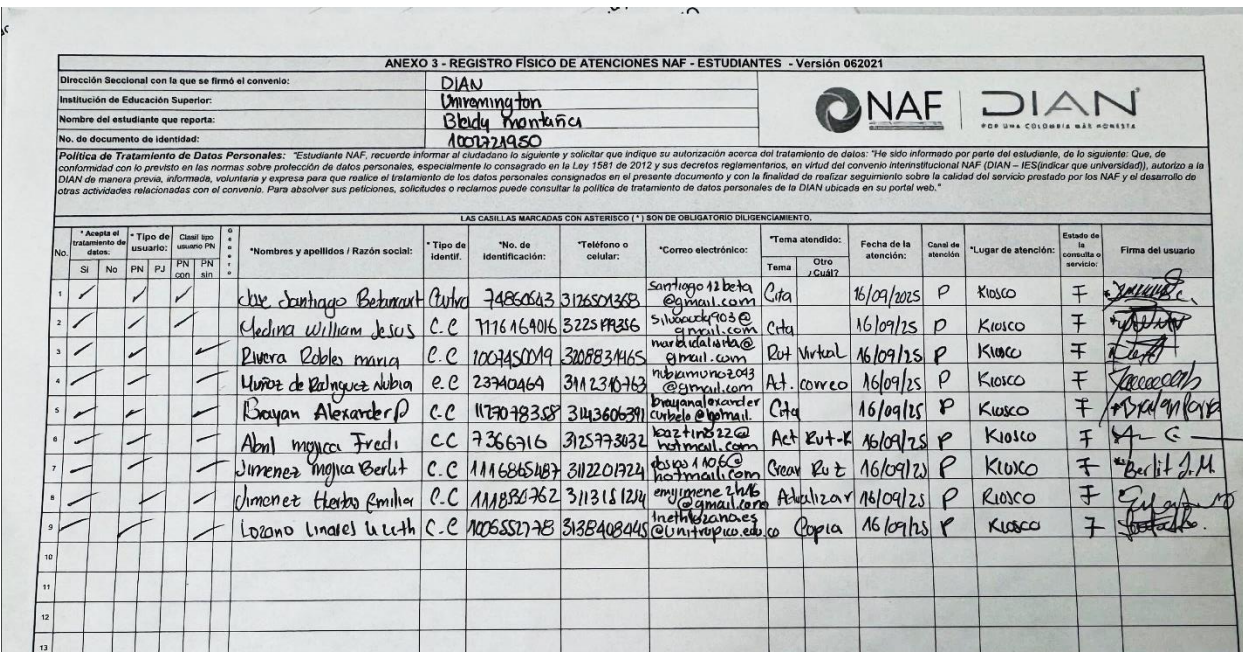 ANEXO 3 - REGISTRO FÍSICO DE ATENCIONES NAF - ESTUDIANTES - Versión 062021
Dirección Seccional con la que se firmó el convenio: DIAN
Institución de Educación Superior: Uniremington
Nombre del estudiante que reporta: Bleidy Montaña
No. de documento de identidad: 1002721950
NAF DIAN
POR UNA COLOMBIA MÁS HONESTA
Política de Tratamiento de Datos Personales: "Estudiante NAF, recuerde informar al ciudadano lo siguiente y solicitar que indique su autorización acerca del tratamiento de datos: "He sido informado por parte del estudiante, de lo siguiente: Que, de
conformidad con lo previsto en las normas sobre protección de datos personales, especialmente lo consagrado en la Ley 1581 de 2012 y sus decretos reglamentarios, en virtud del convenio interinstitucional NAF (DIAN – IES(indicar que universidad)), autorizo a la
DIAN de manera previa, informada, voluntaria y expresa para que realice el tratamiento de los datos personales consignados en el presente documento y con la finalidad de realizar seguimiento sobre la calidad del servicio prestado por los NAF y el desarrollo de
otras actividades relacionadas con el convenio. Para absolver sus peticiones, solicitudes o reclamos puede consultar la política de tratamiento de datos personales de la DIAN ubicada en su portal web."
LAS CASILLAS MARCADAS CON ASTERISCO (*) SON DE OBLIGATORIO DILIGENCIAMIENTO.
No. *Acepta el tratamiento de datos: Si No *Tipo de usuario: PN PJ Clasif tipo usuario PN PN con PN sin Genero *Nombres y apellidos / Razón social: *Tipo de identif. *No. de identificación: *Teléfono o celular: *Correo electrónico: *Tema atendido: Tema Otro ¿Cuál? Fecha de la atención: Canal de atención *Lugar de atención: Estado de la consulta o servicio: Firma del usuario
1 Jose Santiago Betancourt 74860643 3126501368 @gmail.com Cita 16/09/2025 P Kiosco F
2 Medina William Jesus C.C @gmail.com Cita 16/09/25 P Kiosco F
3 Rivera Robles maria C.C 1007450019 3208831465 @gmail.com Rut Virtual 16/09/25 P Kiosco F
4 Muñoz de Nubia C.C 23740464 3112310763 nubiamuno2093@gmail.com Act. correo 16/09/25 P Kiosco F
5 Brayan Alexander P C.C 3143606391 Cita 16/09/25 P Kiosco F
6 Abril mojica Fredi C.C 7366716 3125773032 @hotmail.com Act Rut-K 16/09/25 P Kiosco F
7 Jimenez mojica Berlit C.C 1116865487 3112201724 @hotmail.com Crear Rut 16/09/25 P Kiosco F Berlit J.M.
8 Jimenez Emilia C.C @gmail.com Actualizar 16/09/25 P Kiosco F
9 Lozano Linares C.C 1006552778 3138408445 @unitropico.edu.co Copia 16/09/25 P Kiosco F
10
11
12
13